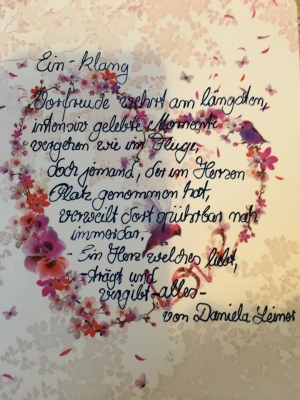 Ein-klang
Vorfreude währt am längsten,
intensiv gelebte Momente
vergehen wie im Fluge,
doch jemand, der im Herzen
Platz genommen hat,
verweilt dort spührbar nah
immerdar.
- Ein Herz welches liebt,
- trägt und
vergibt alles -
von Daniela Leiner